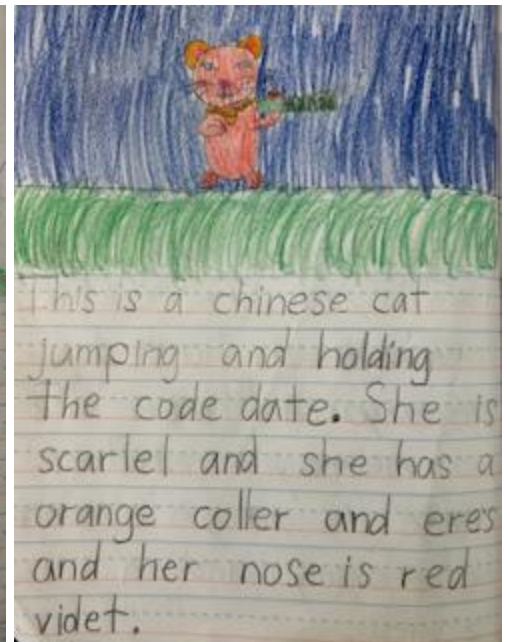 This is a chinese cat
jumping and holding
the code date. She is
scarlel and she has a
orange coller and eres
and her nose is red
videt.